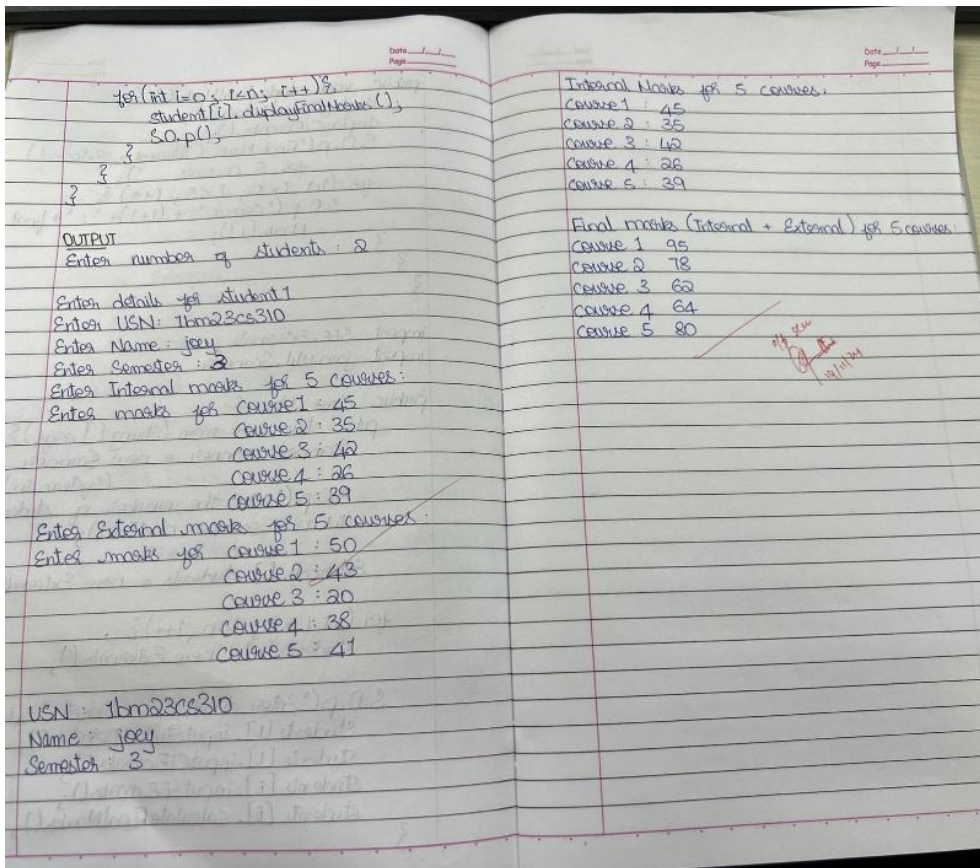 Date / /
Page
for(int i=0; i<n; i++){
student[i].displayFinalMarks();
S.O.p();
}
}
}
OUTPUT
Enter number of students : 2
Enter details for student 1
Enter USN: 1bm23cs310
Enter Name : joey
Enter Semester : 3
Enter Internal marks for 5 courses :
Enter marks for course 1 : 45
course 2 : 35
course 3 : 42
course 4 : 26
course 5 : 39
Enter External marks for 5 courses :
Enter marks for course 1 : 50
course 2 : 43
course 3 : 20
course 4 : 38
course 5 : 41
USN : 1bm23cs310
Name : joey
Semester : 3
Date / /
Page
Internal Marks for 5 courses.
course 1 : 45
course 2 : 35
course 3 : 42
course 4 : 26
course 5 : 39
Final marks (Internal + External) for 5 courses:
course 1 95
course 2 78
course 3 62
course 4 64
course 5 80